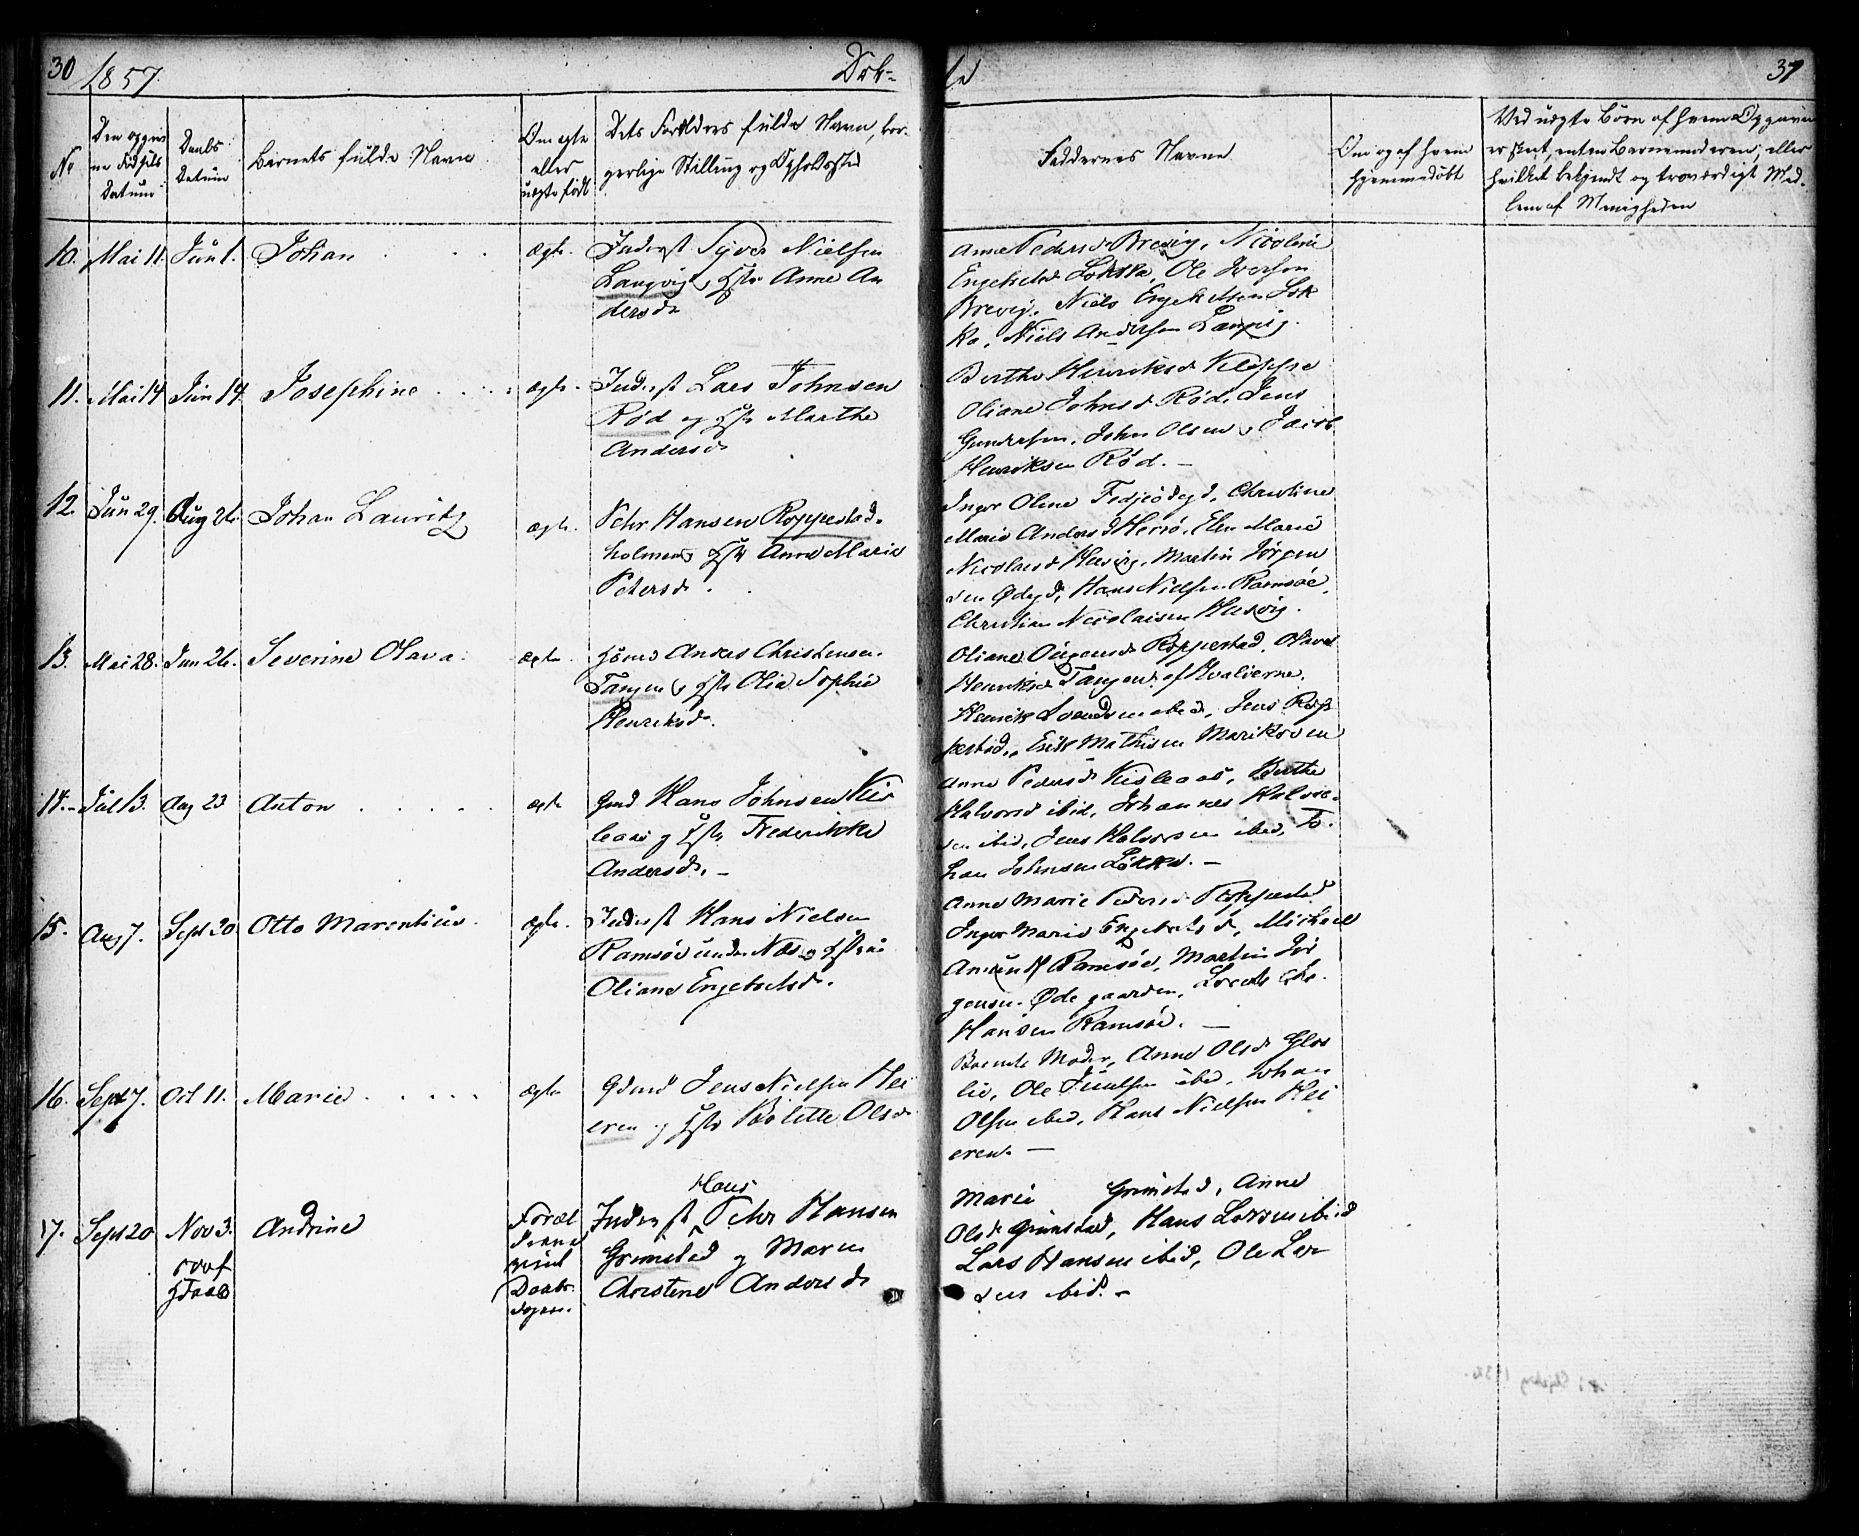 30 1857. Døb-
te 37
No
Den opgiv
ne Fødsels
Datum
Daabs
Datum
Barnets fulde Navn
Om ægte
eller
uægte født
Dets Forældres fulde Navn, bor-
gerlige Stilling og Opholdssted
Faddernes Navne
Om og af hvem
hjemmedøbt
Ved uægte Børn af hvem Opgaven
er skeet, enten Barnemoderen, eller
hvilket bekjendt og troværdigt Med-
lem af Menigheden
10. Mai 11. Jun 1. Johan ægte.
Inderst Syver Nielsen
Langvig og Hstr Anne An
dersd
Anne Pedersd Brevig, Nicoline
Engebretsd Løkka, Ole Iversen
Brevig, Niels Engebretsen Løk
ka, Niels Andersen Langvig.
11. Mai 14 Jun 14 Josephine ægte.
Inderst Lars Johnsen
Rød og Hstr Marthe
Andersd
Berthe Henriksd
Oliane Johnsd Rød, Jens
Gundersen, John Olsen, Jacob
Henriksen Rød. —
12. Jun 29. Aug 26. Johan Lauritz ægte.
Pehr Hansen Roppestad-
holmen og Hstr Anne Marie
Petersd.
Inger Oline Christine
Marie Andersd Herø, Elen Marie
Nicolaisd Husvig, Martin Jørgen
sen Ødegd, Hans Nielsen Ramsøe,
Christian Nicolaisen Husvig.
13. Mai 28. Jun 26. Severine Olava. ægte.
Anders Christensen
Tangen og Hstr Olia Sophie
Henriksd.
Oliane Roppestad, Olave
Henriksd Tangen af Hvaløerne,
Henrik Svendsen ibid, Jens Rop
pestad, Erik Mathisen
14. Jul 13. Aug 23 Anton ægte
Gmd Hans Johnsen Kis
leaas og Hstr Frederikke
Andersd. —
Anne Pedersd Kisleaas, Berthe
Halvorsd ibid, Johannes Halvor-
sen ibid, Jens Halvorsen ibid, Jo-
han Johnsen Løkka. —
15. Aug 7. Sept 20 Otto Marentius ægte.
Inderst Hans Nielsen
Ramsøe under Næs og Hstrue
Oliane Engebretsd.
Anne Marie Pedersd Roppestad
Inger Marie Engebretsd, Michael
Ramsøe, Martin Jør
gensen Ødegaarden,
Hansen Ramsøe. —
16. Sept 7. Oct 11. Marie ægte
Gdmd Jens Nielsen Hei
eren og Hstr Bolette Olsd
Barnets Moder, Anne Olsd Glos
lie, Ole Juulsen ibid, Johan
Olsen ibid, Hans Nielsen Hei
eren. —
17. Sept 20 Nov 3. Andrine
Foræl
drene
viist
Daabs-
Hans
Inderst Pehr Hansen
Grimstad og Maren
Christine Andersd
Marie Grimstad, Anne
Olsd Grimstad, Hans Larsen ibid
Lars Hansen ibid, Ole Lar
sen ibid. —